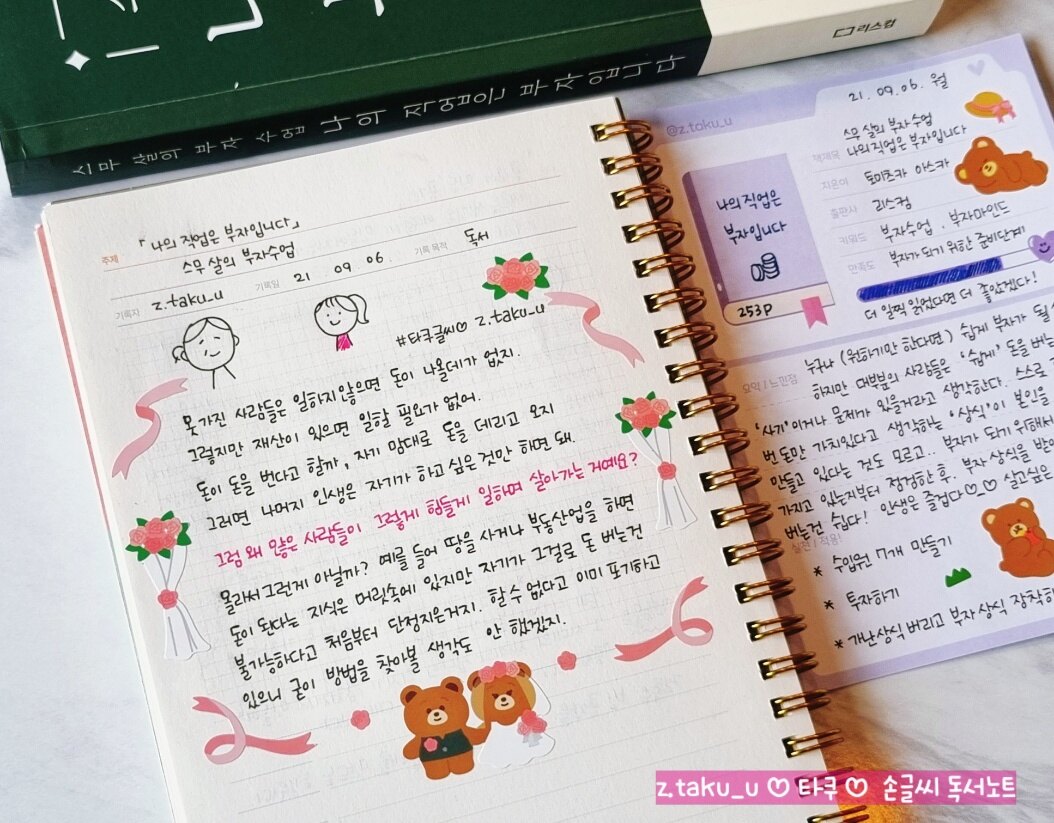 리스컴
스무 살의 부자 수업 나의 직업은 부자입니다
주제
「나의 직업은 부자입니다」
스무 살의 부자수업
기록자 z.taku_u 기록일 21 09 06 기록 목적 독서
#타쿠글씨♡ z.taku_u
못가진 사람들은 일하지않으면 돈이 나올데가 없지.
그렇지만 재산이 있으면 일할 필요가 없어.
돈이 돈을 번다고 할까, 자기 맘대로 돈을 데리고 오지
그러면 나머지 인생은 자기가 하고 싶은것만 하면 돼.
그럼 왜 많은 사람들이 그렇게 힘들게 일하며 살아가는 거예요?
몰라서그런게 아닐까? 예를 들어 땅을 사거나 부동산업을 하면
돈이 된다는 지식은 머릿속에 있지만 자기가 그걸로 돈 버는건
불가능하다고 처음부터 단정지은거지. 할 수 없다고 이미 포기하고
있으니 굳이 방법을 찾아볼 생각도 안 했겠지.
@z.taku_u
21. 09. 06. 월
책제목 스무 살의 부자수업
나의 직업은 부자입니다
지은이 토미츠카 아스카
출판사 리스컴
키워드 부자수업 . 부자마인드
만족도 부자가 되기 위한 준비단계
더 일찍 읽었다면 더 좋았겠다!
나의 직업은
부자입니다
253P
요약 / 느낀점
누구나 (원하기만 한다면) 쉽게 부자가 될
하지만 대부분의 사람들은 '쉽게' 돈을 버는
'사기'이거나 문제가 있을거라고 생각한다. 스스로
번 돈만 가치있다고 생각하는 '상식'이 본인을
만들고 있다는 것도 모르고.. 부자가 되기 위해서
가지고 있는지부터 점검한 후. 부자 상식을 받
버는건 쉽다! 인생은 즐겁다♡_♡ 살고싶은
실천 / 적용!
* 수입원 7개 만들기
* 투자하기
* 개난상식 버리고 부자 상식 장착하
z.taku_u ♡ 타쿠 ♡ 손글씨 독서노트